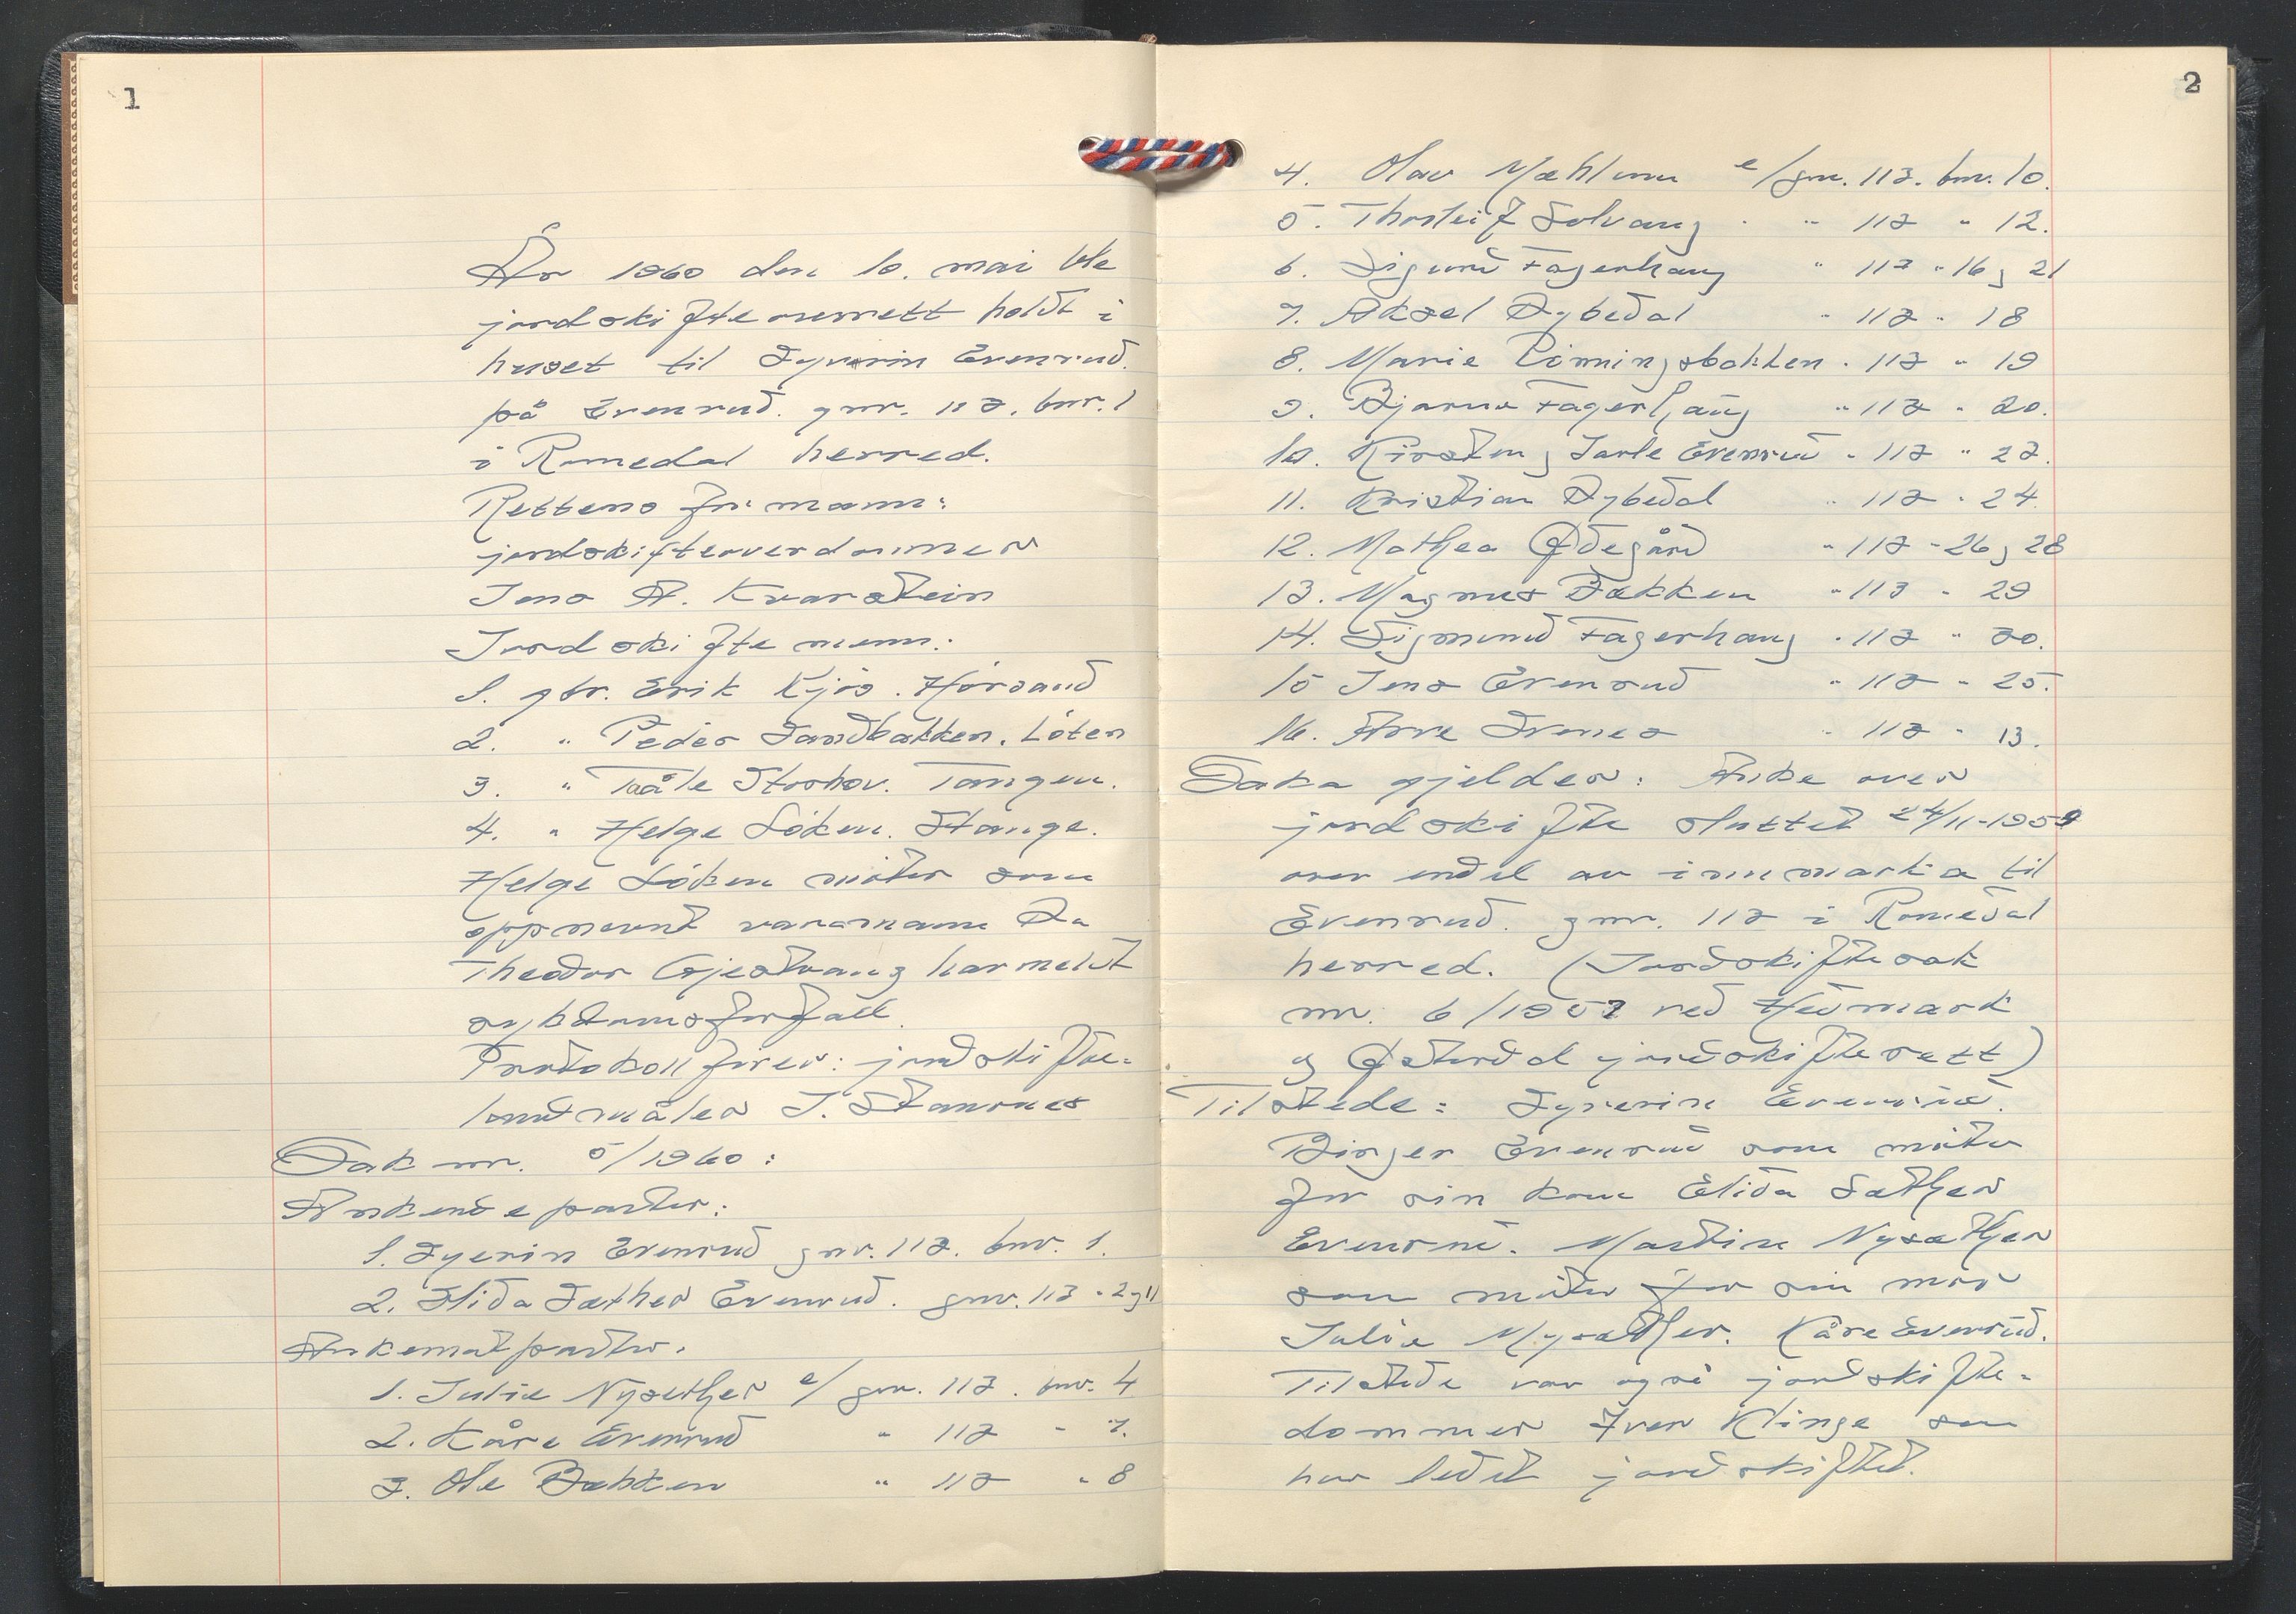 1
År 1960 den 10. mai ble
jordskifteoverrett holdt i
huset til Syverin Evenrud
på Evenrud. gnr. 113. bnr. 1
i Romedal herred.
Rettens formann:
jordskifteoverdommer
Jens A. Kvarstein
Jordskiftemenn:
1. gbr. Erik Kjøs. Hørsand
2. " Peder Sandbakken. Löten
3. " Tråle Storhov. Tangen.
4. " Helge Löken. Stange.
Helge Löken möter som
oppnevnt varamann da
Theodor Gjestvang har meldt
sykdomsforfall.
Protokollfører: jordskifte-
landmåler J. Stamnes
Sak nr. 5/1960:
Ankende parter:
1. Syverin Evenrud gnr. 113. bnr. 1.
2. Elida Sæther Evenrud. gnr. 113 - 2 og 11
Ankemotparter.
1. Julie Nysæther e/ gnr. 113. bnr. 4
2. Kåre Evenrud " 113 - 7.
3. Ole Bækken " 113 " 8
2
4. Olav Mæhlum e/gnr. 113. bnr. 10.
5. Thorleif Solvang " " 113 " 12.
6. Sigurd Fagerhaug " 113 " 16 og 21
7. Aksel Dybedal " 113 " 18
8. Marie Pinningsbakken " 113 " 19
9. Bjarne Fagerhaug " 113 " 20.
10. Kirsten og Jarle Evenrud " 113 " 23.
11. Kristian Dybedal " 113 " 24
12. Mathea Ødegård " 113 " 26 og 28
13. Magnus Bækken " 113 " 29
14. Sigmund Fagerhaug " 113 " 30.
15 Jens Evenrud " 113 " 25.
16. Arve Svenes " 113 " 13.
Saka gjelder: Anke over
jordskifte sluttet 24/11-1959
over endel av innmarka til
Evenrud. gnr. 113 i Romedal
herred. (Jordskiftesak
nr. 6/1957 ved Hedmark
og Østerdal jordskifterett)
Tilstede: Syverin Evenrud.
Birger Evenrud som möter
for sin kone Elida Sæther
Evenrud. Martin Nysæther
som möter for sin mor
Julie Nysæther. Kåre Evenrud.
Tilstede var også jordskifte-
dommer Iver Klinge som
har ledet jordskiftet.